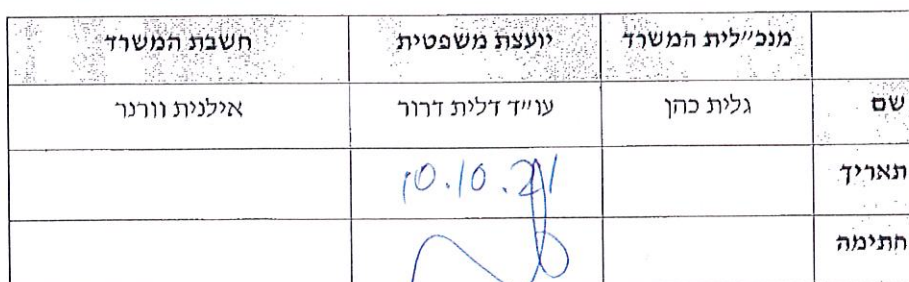 מנכ״לית המשרד יועצת משפטית חשבת המשרד
שם גלית כהן עו״ד דלית דרור אילנית וורנר
תאריך 10.10.21
חתימה